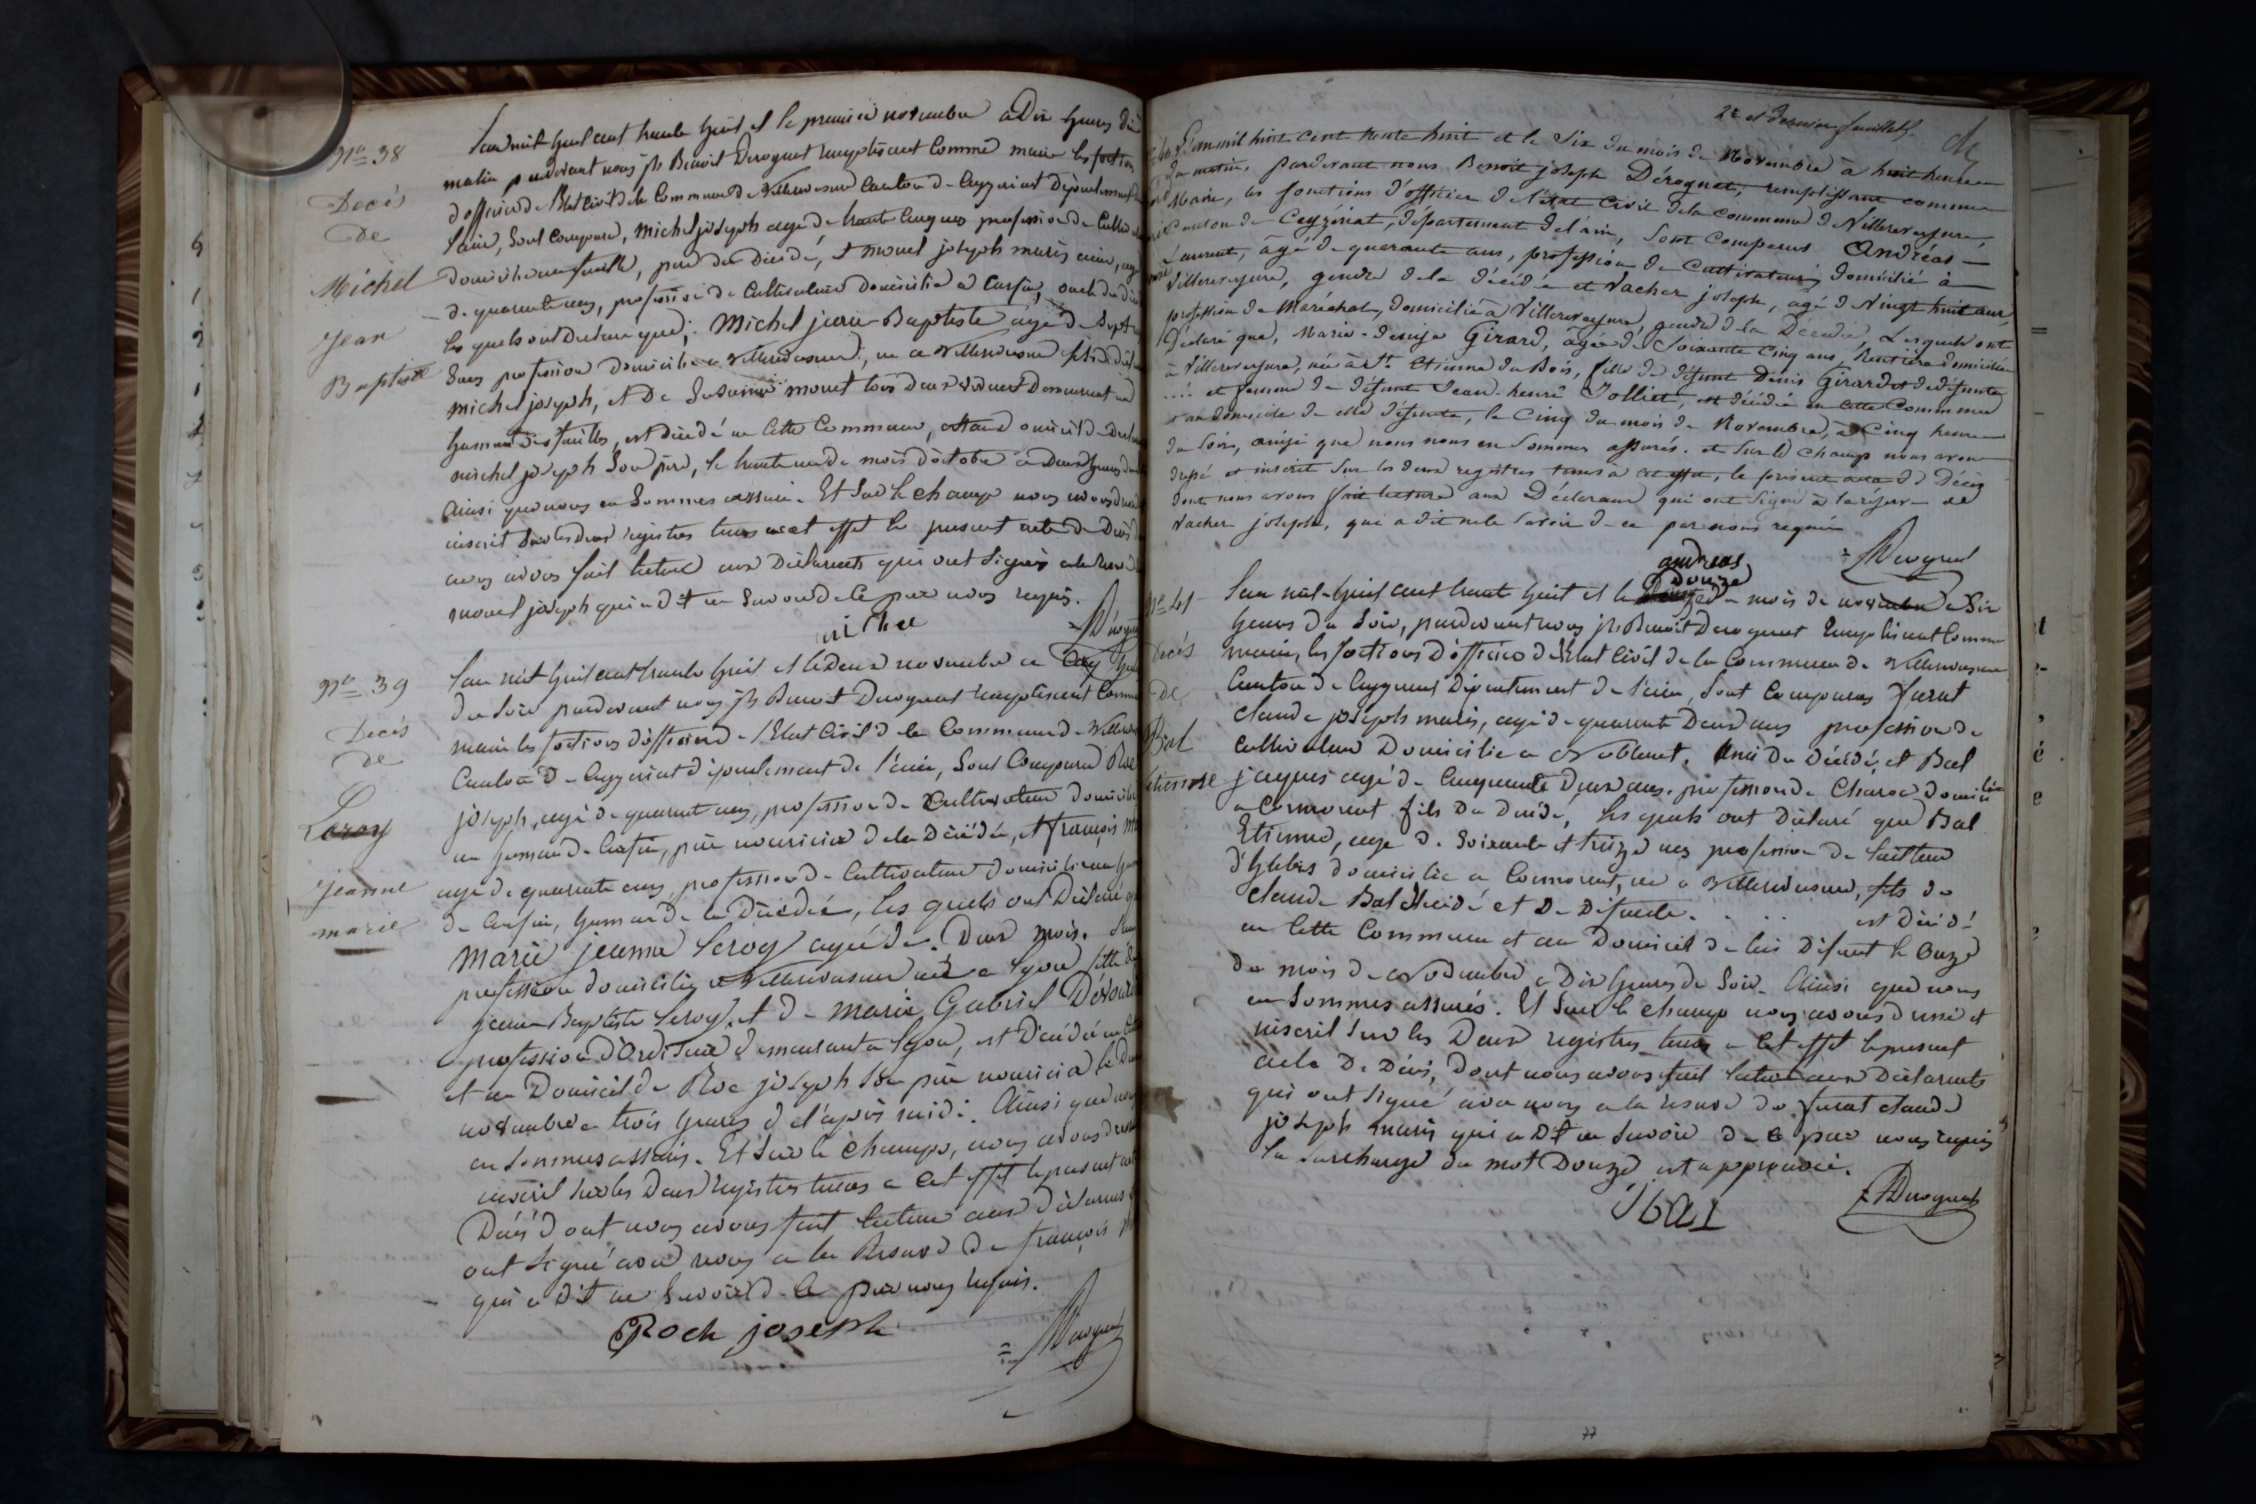 N° 38
Decés
de
Michel
Jean
Baptiste
L'an mil huit cent trente huit et le premier novembre a Dix heures du
matin pardevant nous jh Benoit Derognat remplissant Comme maire les fonctions
d'officier de l'Etat Civil de la Commune de Villereversure Canton de Ceyzeriat Département de
l'ain, Sont Comparus, michel joseph agé de trente Cinq ans profession de Cultivateur
domicilié, pere du Décédé, et monel joseph marie, agé
de quarante ans, profession de Cultivateur domicilié a, oncle du
les quels ont Declaré que, Michel jean-Baptiste agé de Sept
Sans profession domicilié a Villereversure, né a Villereversure fils de
michel joseph, et De Susanne monet tous deux vivant Demeurant au
hameau des feuilles, est décédé en Cette Commune, au domicil de
michel joseph Son père, le trente un du mois d'octobre a Deux heures
Ainsi que nous en Sommes assuré. Et Sur le Champ nous avons dressé
inscrit Sur les deux registres tenus a cet effet le present acte de Décès
nous avons fait lecture aux Déclarants qui ont Signés a la Reserve de
monel joseph qui a dit ne Savoir de Ce par nous requis.
michel
Derognat
N° 39
Decés
de
Leroy
Jeanne
marie
L'an mil huit cent trente huit et le deux novembre a Cinq heures
du Soir pardevant nous jh Benoit Derognat remplissant Comme
maire les fonctions d'officier de l'Etat Civil de la Commune de Villerev
Canton de Ceyzeriat département de l'ain, Sont Comparus Roc
joseph, agé de quarante ans, profession de Cultivateur domicilié
au hameau de, père nouricier de la Décédée, et françois
agé de quarante ans, profession de Cultivateur domicilié au
de, hameau de la Décédée, les quels ont Déclaré que
Marie jeanne Leroy agée de Deux mois. Sans
profession domiciliée a Villereversure née a Lyon fille de
jean-Baptiste Leroy, et de marie Gabriel
profession d' demeurant a Lyon, est Décédée en Cette
et au Domicil de Roc joseph Son père nouricier le Deux
novembre a trois heures de l'après midi. Ainsi que nous
en Sommes assurés. Et Sur le Champ, nous avons dressé
inscrit Sur les Deux registres tenus a Cet effet le present acte
Décès dont nous avons fait lecture aux déclarants
ont Signé avec nous a la Reserve De françois
qui a Dit ne Savoir de Ce par nous requis.
Roch joseph
Derognat
2e et dernier feuillet
L'an mil huit cent trente huit et le Six du mois de Novembre à huit heures
du matin, pardevant nous Benoit joseph Dérognat, remplissant comme
Maire, les fonctions d'officier de l'état civil de la commune de Villereversure,
Canton de Ceyzériat, département de l'ain, Sont Comparus Andréas
Laurent, âgé de quarante ans, profession de Cultivateur, domicilié à
Villereversure, gendre de la décédée et Vacher joseph, agé de Vingt huit ans,
profession de Maréchal, domicilié à Villereversure, gendre de la Décédée, Lesquels ont
Déclaré que, Marie-denise Girard, âgée de Soixante Cinq ans, Rentière domiciliée
à Villereversure, née à St. Etienne du Bois, fille de défunt Denis Girard et de défunte
.... et femme de défunt Jean-henri Jolliet, est décédée en cette Commune
et au domicile de elle défunte, le Cinq du mois de Novembre, à Cinq heures
du Soir, ainsi que nous nous en Sommes assurés. et Sur le champ nous avons
dressé et inscrit Sur les deux registres tenus à cet effet, le présent acte de Décès
dont nous avons fait lecture aux Déclarans qui ont Signé à la réserve de
Vacher joseph, qui a dit ne le Savoir de ce par nous requis
andreas
Derognat
N° 41
Decés
De
Bal
Etienne
L'an mil huit cent trente huit et le Douze du mois de novembre a Six
heures du Soir, pardevant nous jh Benoit Derognat remplissant Comme
maire, les fonctions d'officier de l'Etat Civil de la Commune de Villereversure
Canton de Ceyzeriat Département de l'ain, Sont Comparus Furat
claude joseph marie, agé de quarante Deux ans profession de
Cultivateur Domicilié a Noblant. Ami du Décédé et Bal
jacques agé de Cinquante Deux ans. profession de Charon domicilié
a Cormorant fils du Décédé, les quels ont Déclaré que Bal
Etienne, agé de Soixante et treize ans profession de tailleur
d'habis domicilié a Cormorant, né a Villereversure, fils de
claude Bal Décédé et De Défunte. . . . est Décédé
en Cette Commune et au Domicil de lui Défunt le Onze
du mois de Novembre a Dix heures du Soir. Ainsi que nous
en Sommes assurés. Et Sur le champ nous avons Dressé et
inscrit Sur les Deux registres tenus a Cet effet le present
acte De Décès, Dont nous avons fait lecture aux Déclarants
qui ont Signé avec nous a la reserve de Furat claude
joseph marie qui a Dit ne Savoir de Ce par nous requis
la Surcharge du mot Douze est approuvée.
jbal
Derognat
77